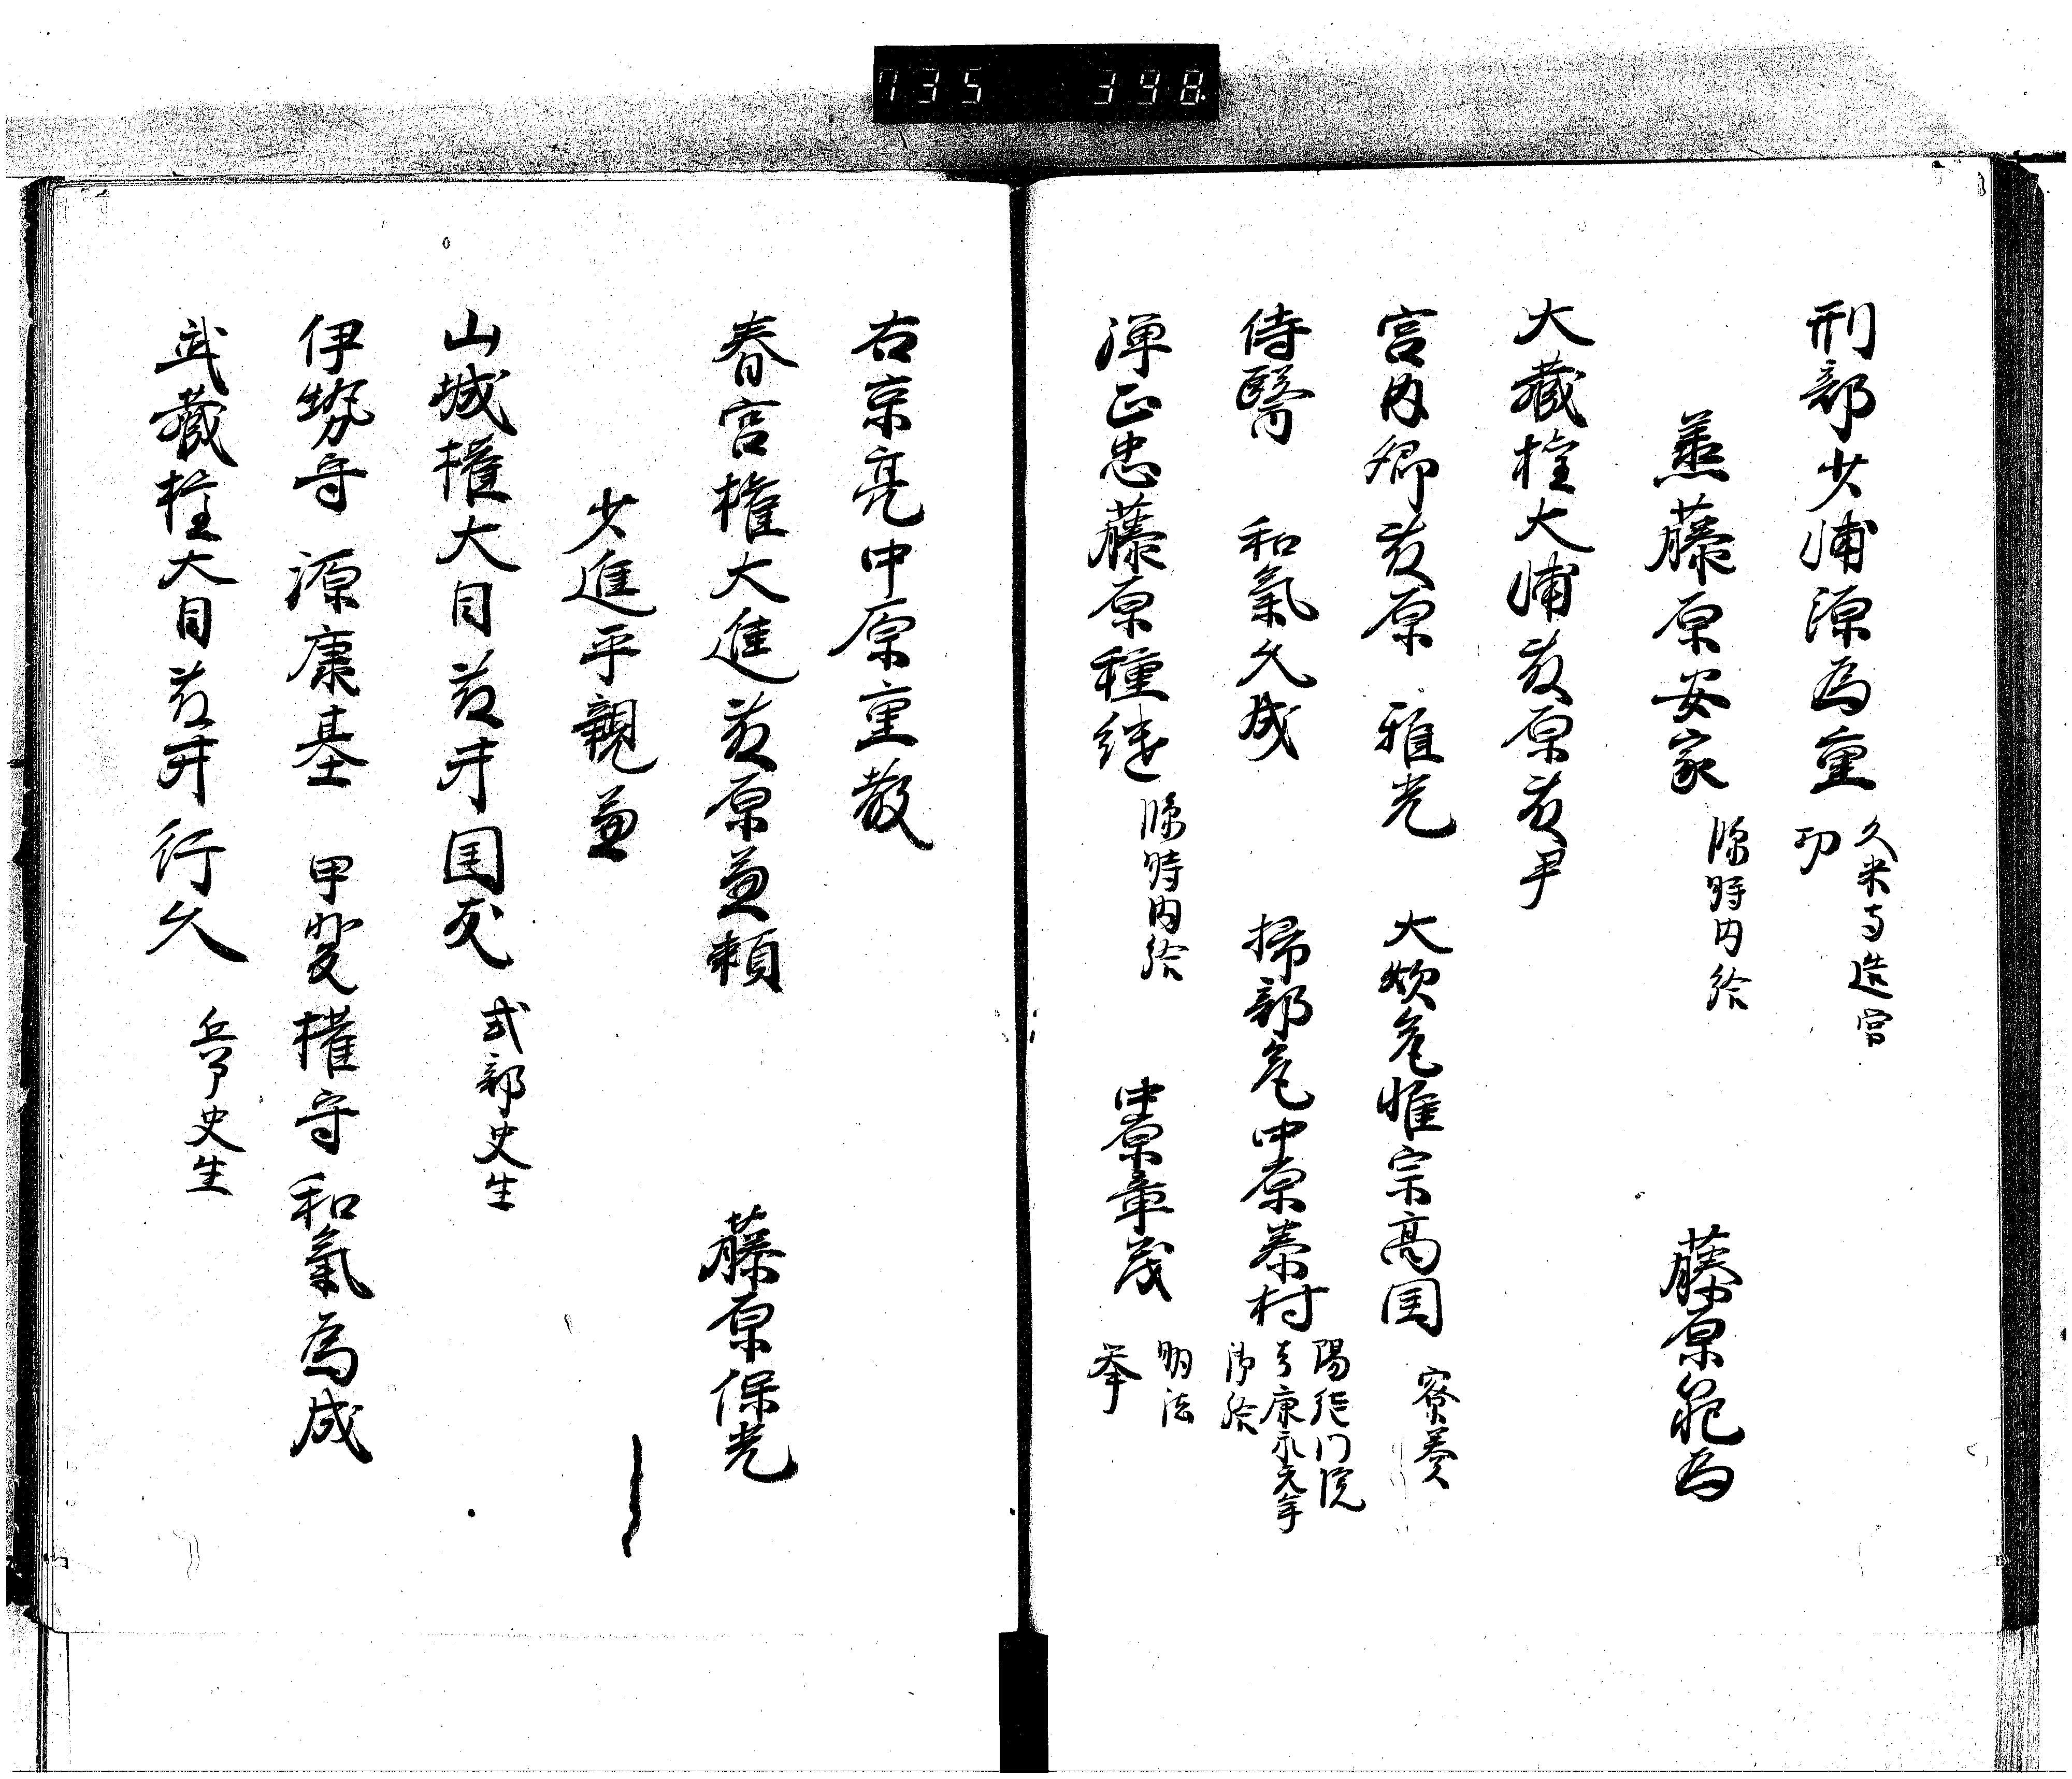 735 398
刑部少輔源為重 久米寺造宮
功
丞藤原安家 臨時内給 藤原範為
大蔵権大輔藤原藤尹
宮内卿藤原雅光 大炊允惟宗高国 寮奏
侍醫 和氣久成 掃部允中原泰村 陽徳門院
去康永元年
御給
弾正忠藤原種継 臨時内給 中原章茂 明法
挙
右京亮中原重教
春宮権大進藤原兼頼 藤原保光
少進平親兼
山城権大目藤井国友 式部史生
伊勢守 源康基 甲斐権守 和氣為成
武蔵権大目藤井行久 兵部史生